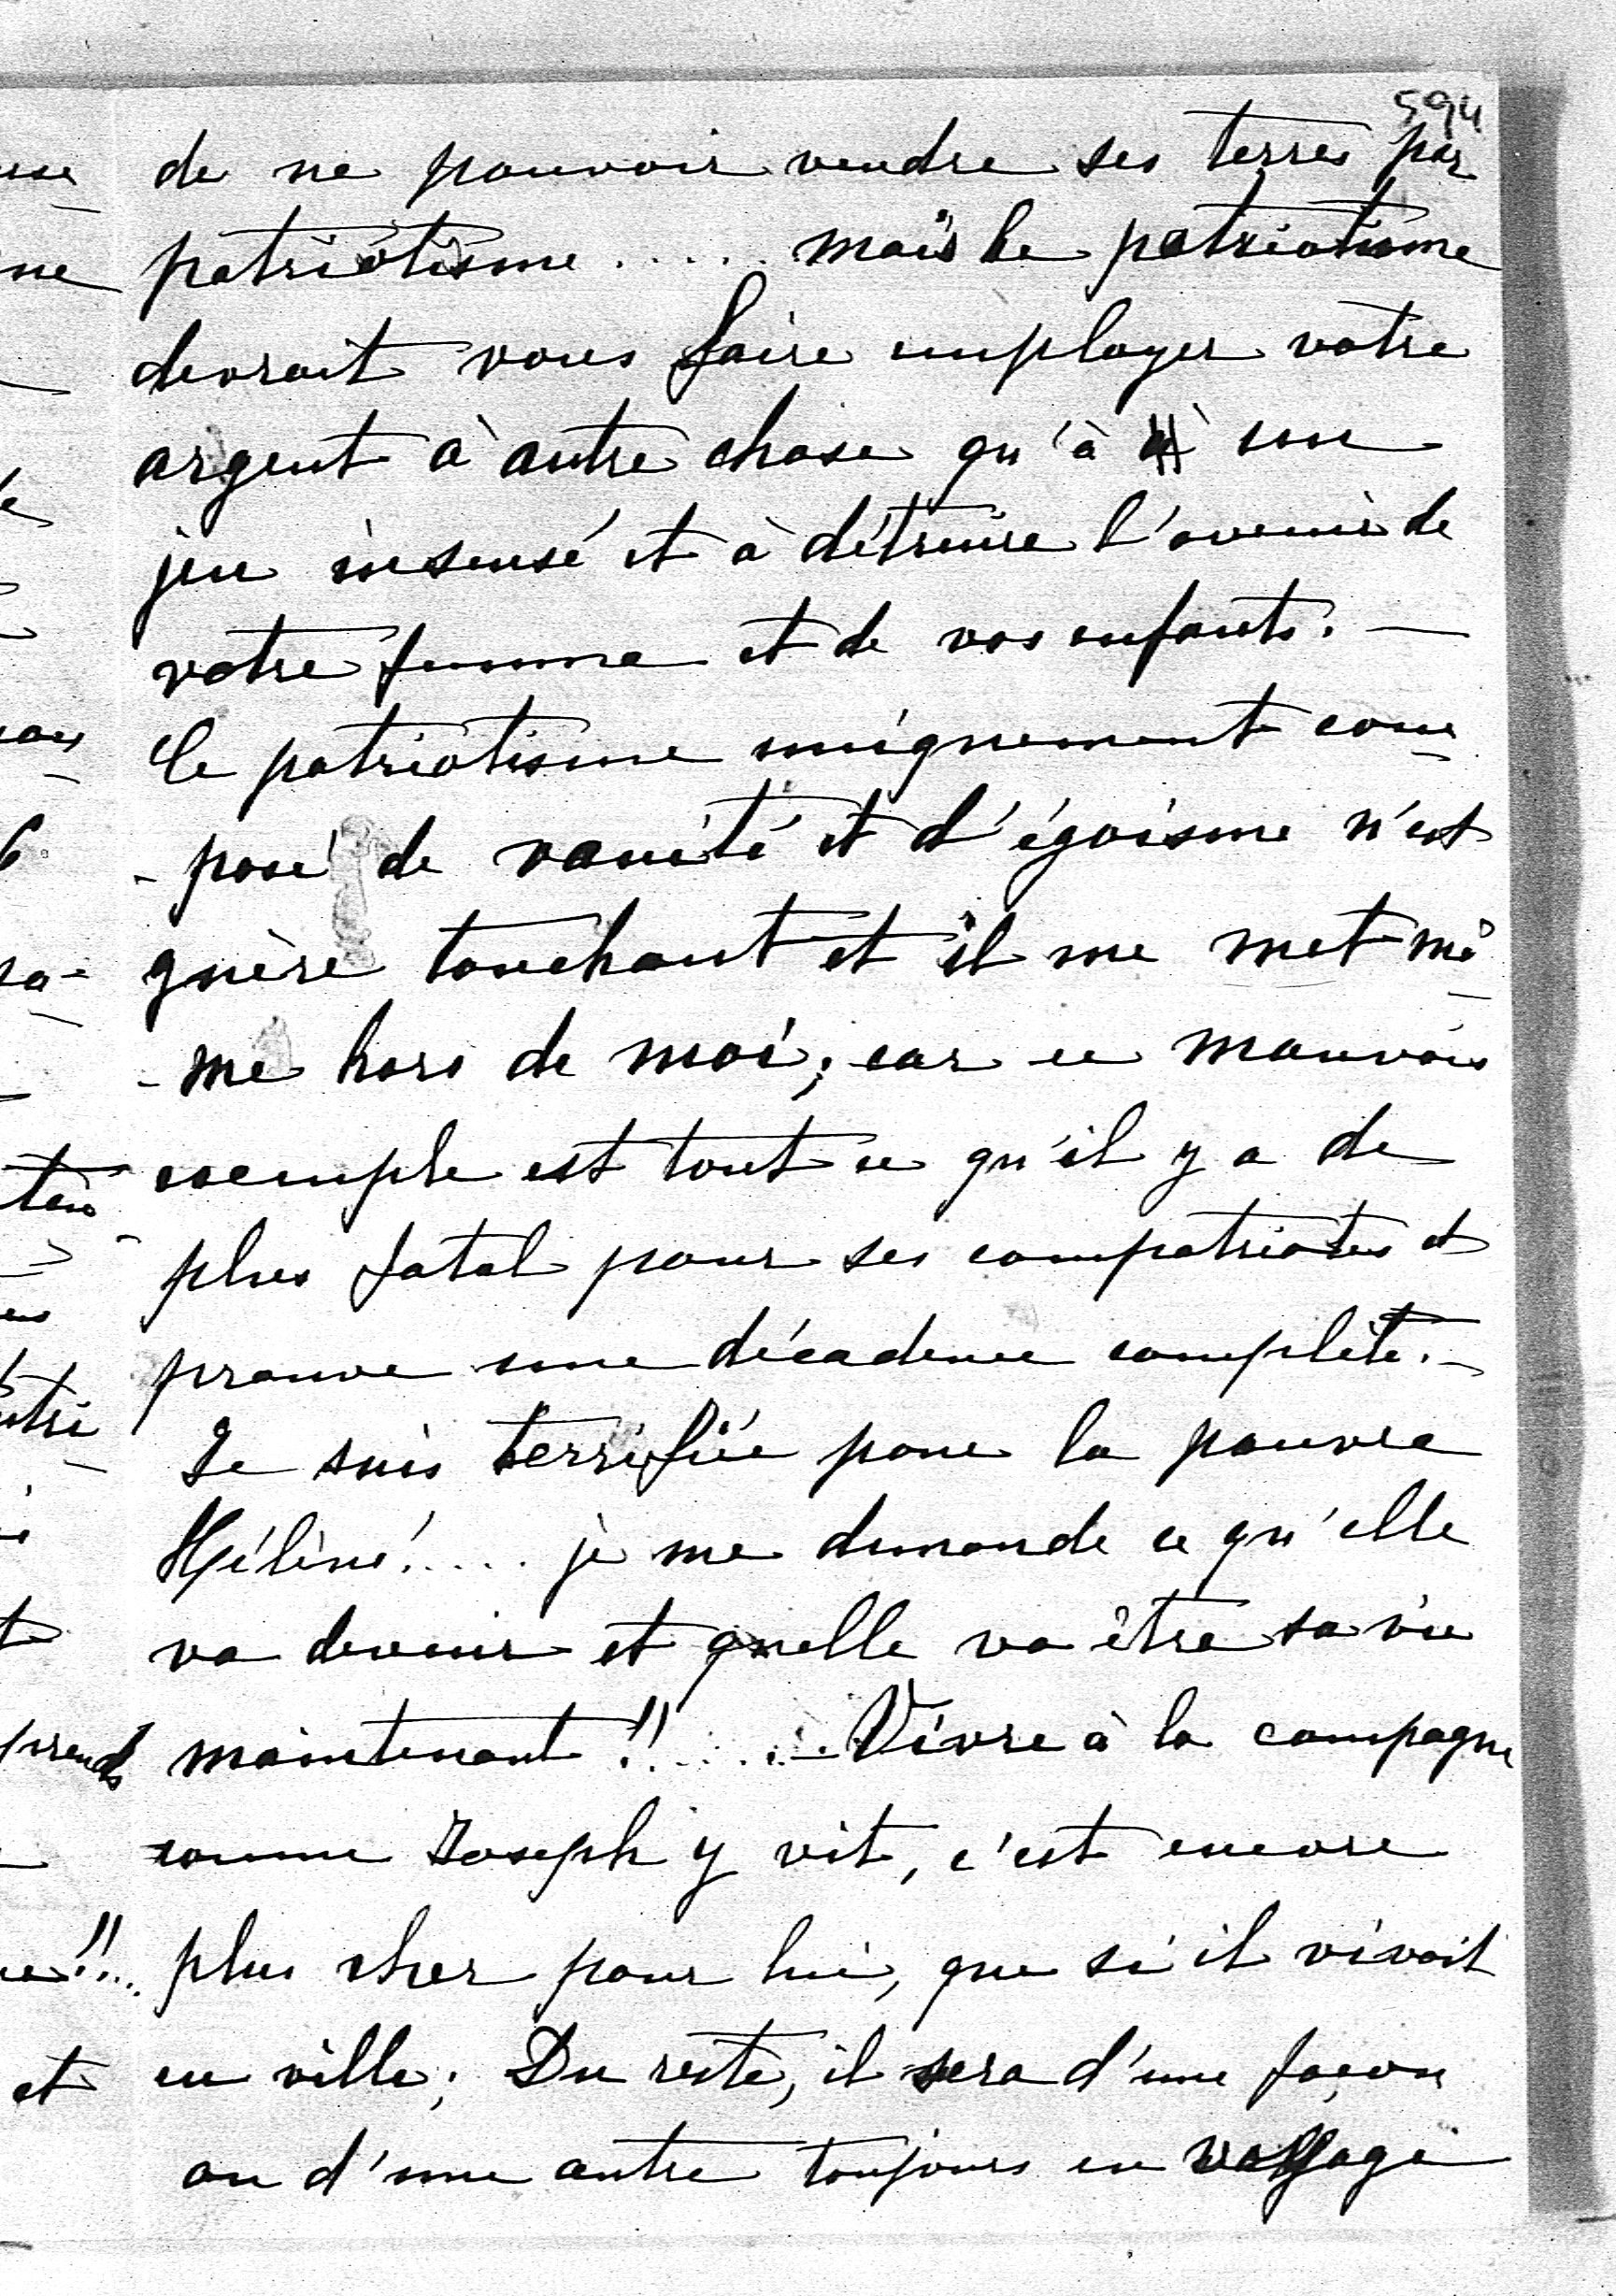 594
de ne pouvoir vendre ses terres par
patriotisme..... mais le patriotisme
devrait vous faire employer votre
argent à autre chose qu'à un
jeu insensé et à détruire l'avenir de
votre femme et de vos enfants. —
Le patriotisme uniquement com-
-posé de vanité et d'égoisme n'est
guère touchant et il me met mê-
-me hors de moi; car ce mauvais
exemple est tout ce qu'il y a de
plus fatal pour ses compatriotes et
prouve une décadence complète. —
Je suis terrifiée pour la pauvre
Hélène!.... je me demande ce qu'elle
va devenir et quelle va être sa vie
maintenant!!...... Vivre à la campagne
comme Joseph y vit, c'est encore
plus cher pour lui, que si il vivait
en ville; Du reste, il sera d'une façon
ou d'une autre toujours en voyage
prends
et